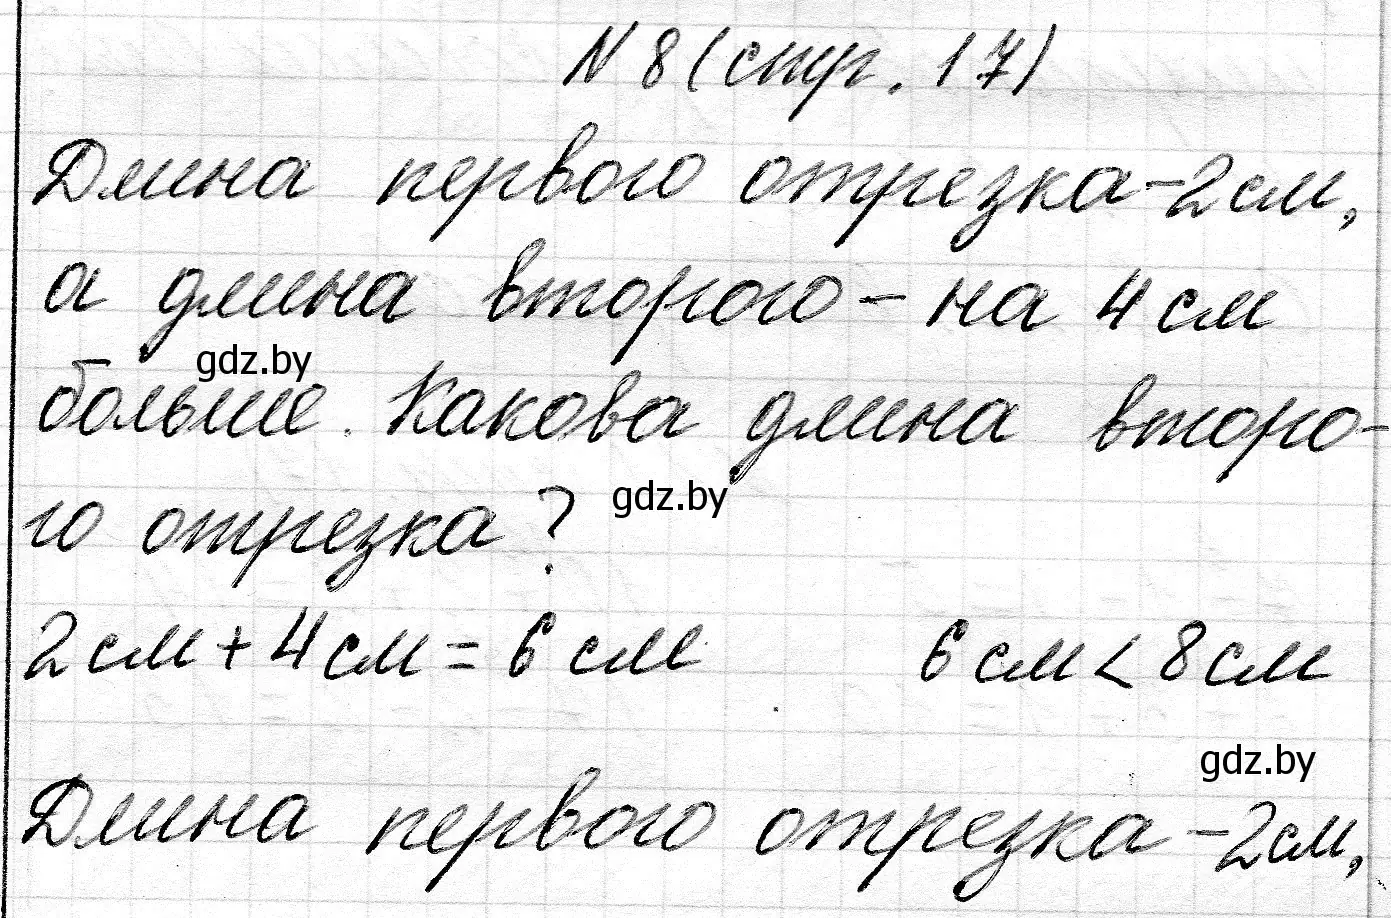 N 8 (стр. 17)
Длина первого отрезка - 2 см,
а длина второго - на 4 см
gdz.by
больше. Какова длина второ-
gdz.by
го отрезка?
2 см + 4 см = 6 см 6 см < 8 см
gdz.by
Длина первого отрезка - 2 см,